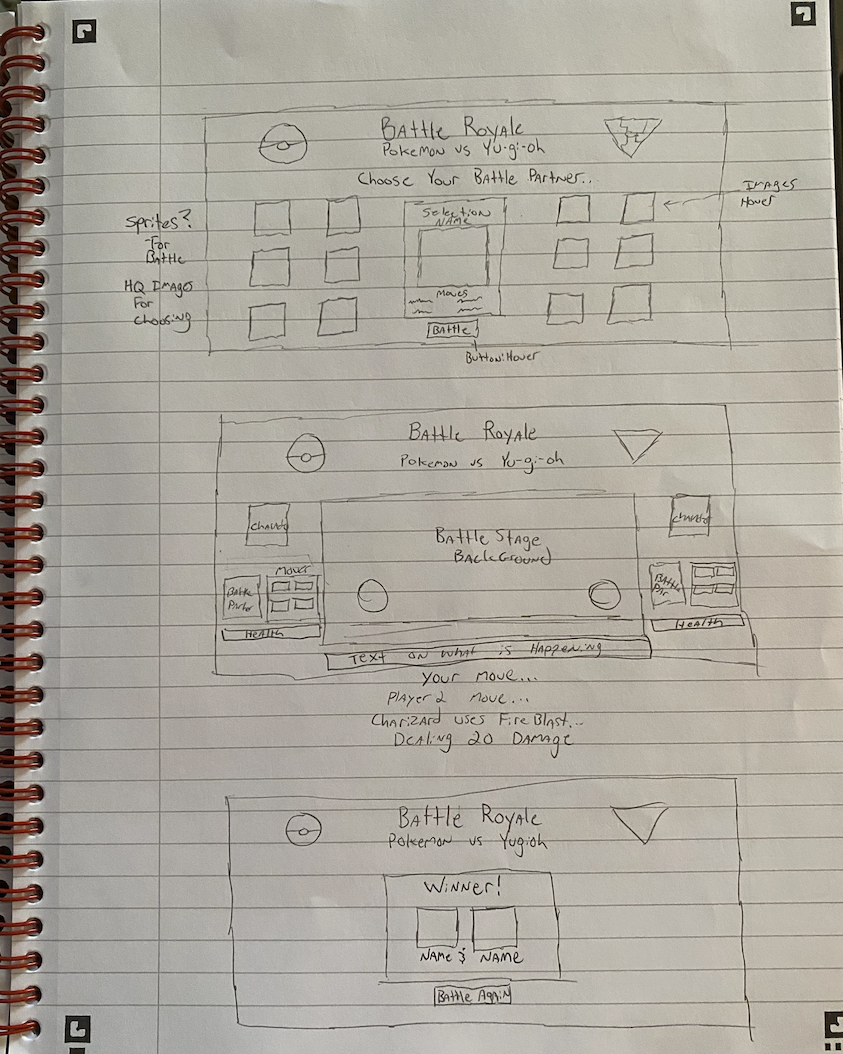 Battle Royale
Pokemon vs Yu-gi-oh
Choose Your Battle Partner..
Images
Hover
Sprites?
For
Battle
HQ Images
For
choosing
Selection
Name
Moves
Battle
Button:Hover
Battle Royale
Pokemon vs Yu-gi-oh
Battle Stage
Background
Moves
Battle
Health
Battle
Health
Text on what is Happening
Your move...
Player 2 move...
Charizard uses Fire Blast...
Dealing 20 Damage
Battle Royale
Pokemon vs Yugioh
Winner!
Name & Name
Battle Again